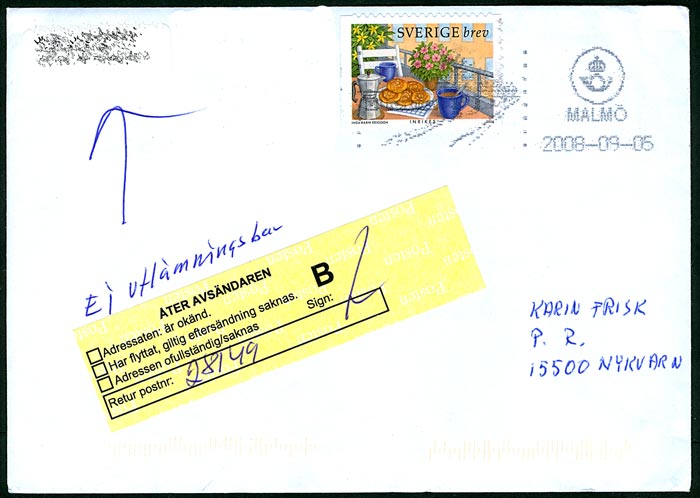 SVERIGE brev
INGA-KARIN ERIKSSON
INRIKES
MALMÖ
2008-09-05
Ej utlämningsbar
ÅTER AVSÄNDAREN
B
Adressaten: är okänd.
Har flyttat, giltig eftersändning saknas.
Adressen ofullständig/saknas
Sign:
Retur postnr: 28149
KARIN FRISK
P. R.
15500 NYKVARN
Posten